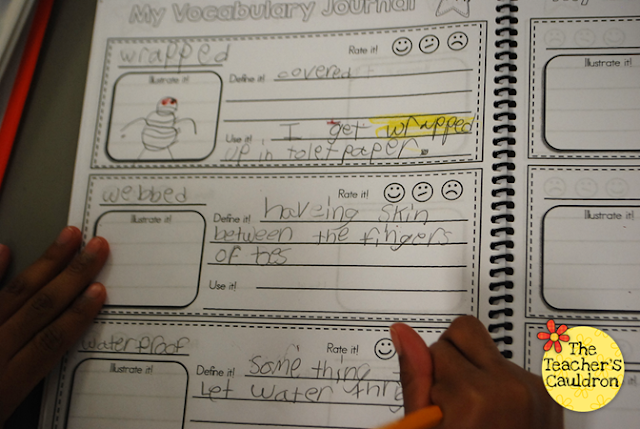 My Vocabulary Journal
wrapped
Rate it!
Illustrate it!
Define it! covered
Use it! I get wrapped
up in tolet paper.
webbed
Rate it!
Illustrate it!
Define it! haveing skin
between the fingers
of toes
Use it!
waterproof
Rate it!
Illustrate it!
Define it! some thing
let water
Illustrate it!
Illustrate it!
The
Teacher's
Cauldron